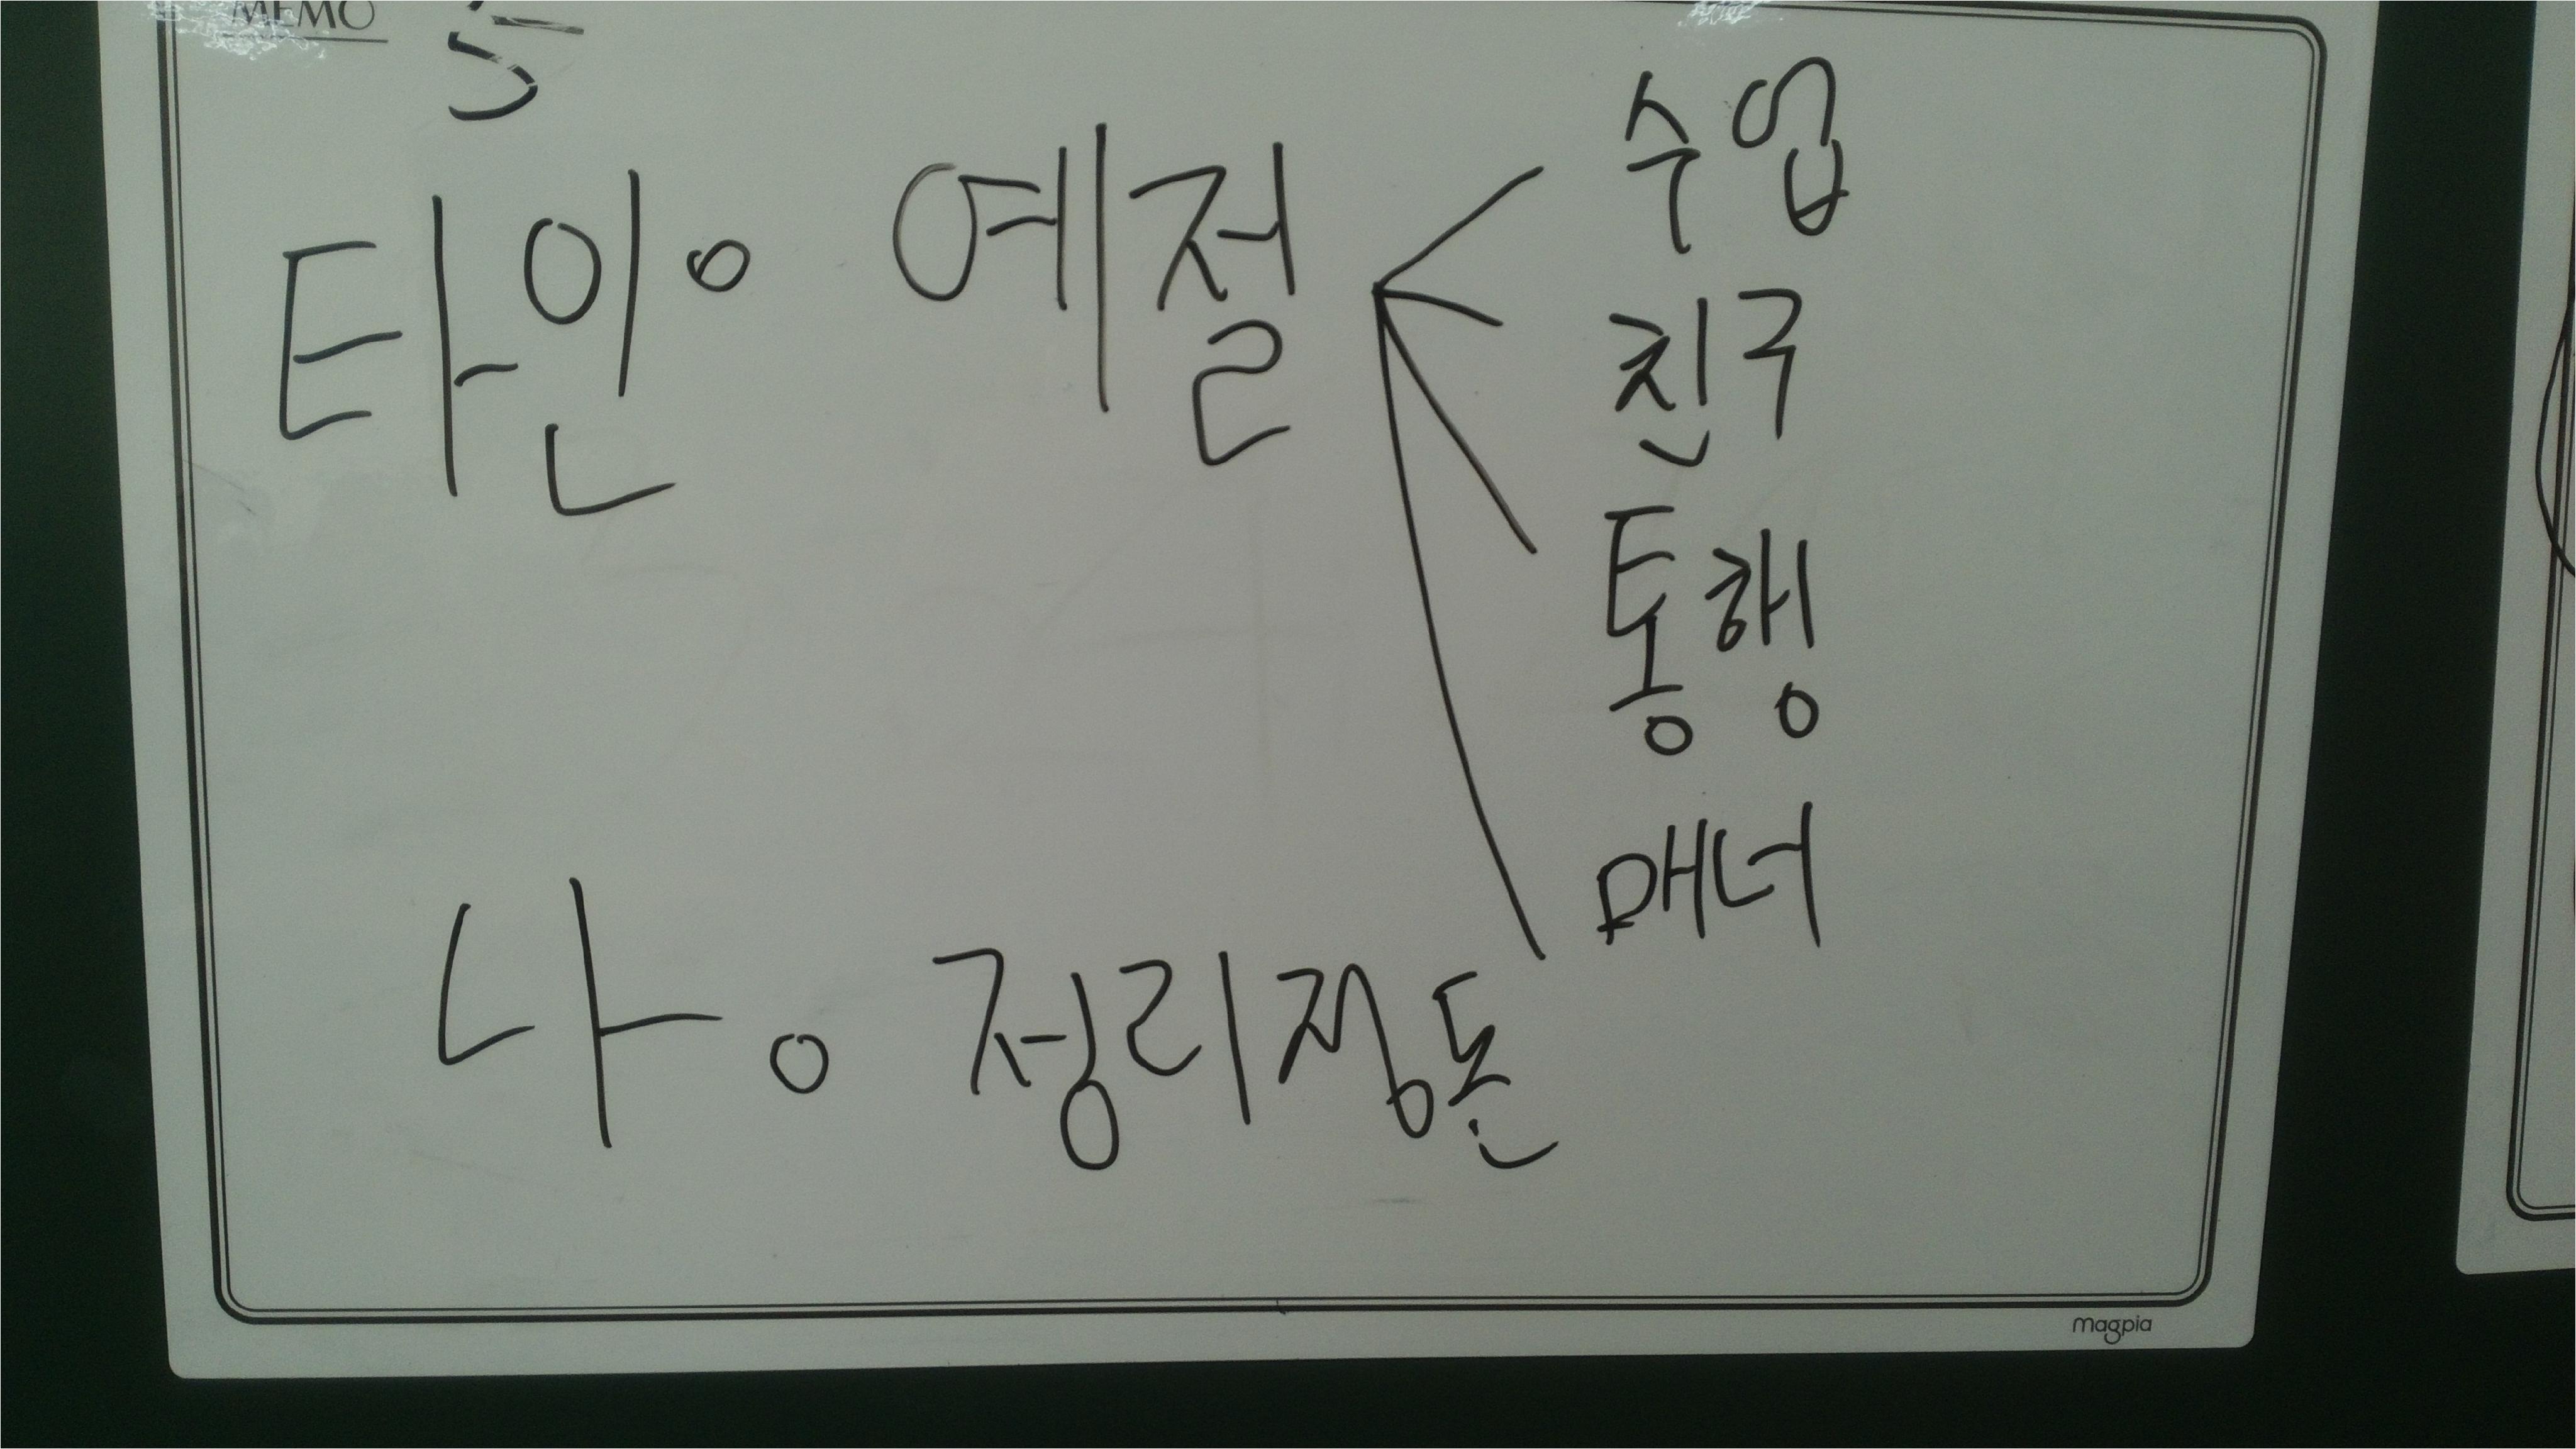 MEMO
5
타인。 예절
수업
친구
통행
매너
나。 정리정돈
magpia